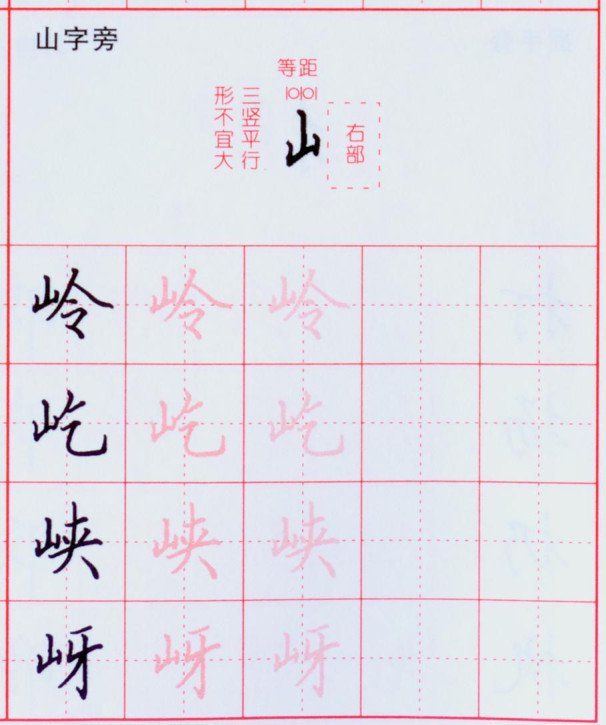 山字旁
等距
三竖平行
形不宜大
山
右部
岭 岭 岭
屹 屹 屹
峡 峡 峡
岈 岈 岈